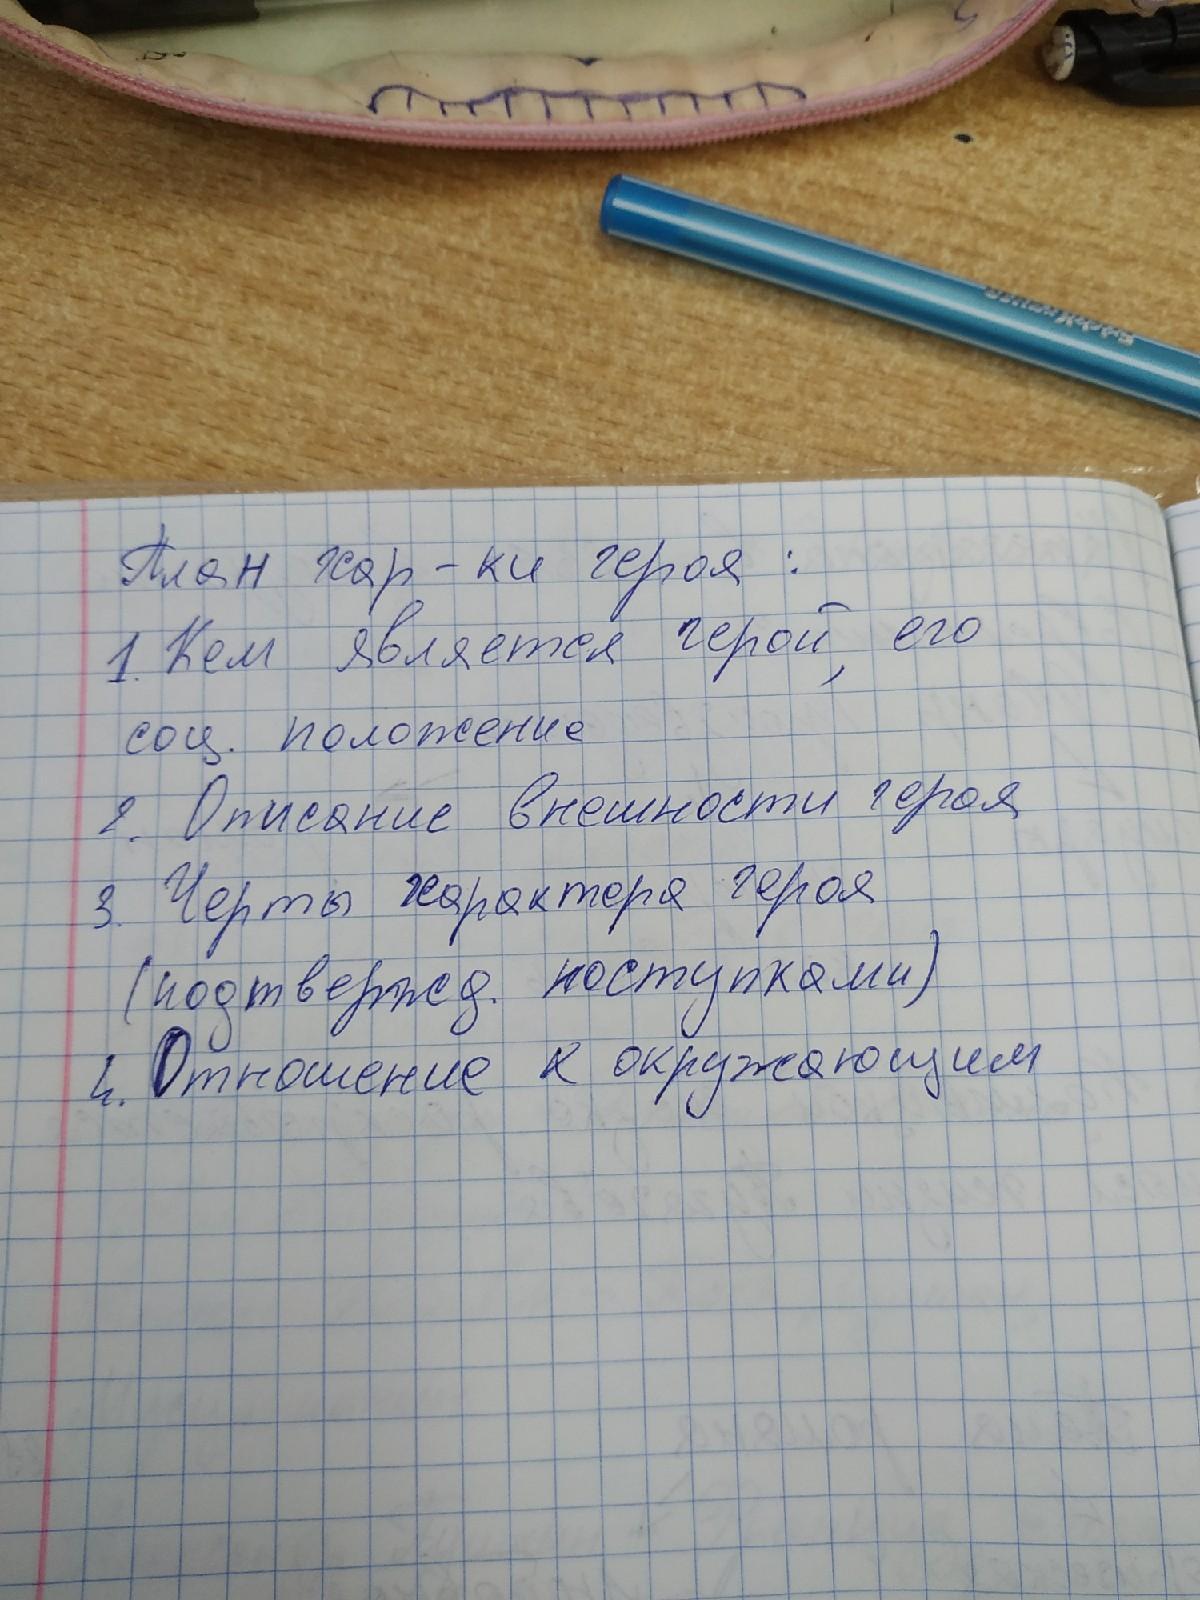 ErichKrause
План хар-ки героя :
1. Кем является герой, его
соц. положение
2. Описание внешности героя
3. Черты характера героя
(подтвержд. поступками)
4. Отношение к окружающим